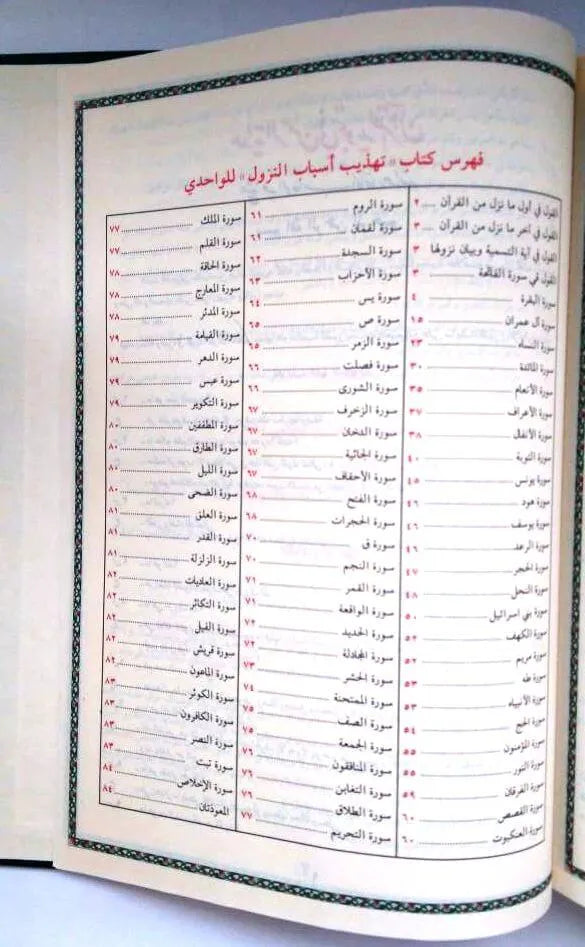 فهرس كتاب «تهذيب أسباب النزول» للواحدي
القول في أول ما نزل من القرآن ..... ٢
القول في آخر ما نزل من القرآن ..... ٣
القول في آية التسمية وبيان نزولها ٣
القول في سورة الفاتحة ..... ٣
سورة البقرة ..... ٤
سورة آل عمران ..... ١٥
سورة النساء ..... ٢٣
سورة المائدة ..... ٣٠
سورة الأنعام ..... ٣٥
سورة الأعراف ..... ٣٧
سورة الأنفال ..... ٣٨
سورة التوبة ..... ٤٠
سورة يونس ..... ٤٥
سورة هود ..... ٤٦
سورة يوسف ..... ٤٦
سورة الرعد ..... ٤٦
سورة الحجر ..... ٤٧
سورة النحل ..... ٤٨
سورة بني اسرائيل ..... ٥٠
سورة الكهف ..... ٥٢
سورة مريم ..... ٥٢
سورة طه ..... ٥٣
سورة الأنبياء ..... ٥٣
سورة الحج ..... ٥٤
سورة المؤمنون ..... ٥٥
سورة النور ..... ٥٥
سورة الفرقان ..... ٥٩
سورة القصص ..... ٦٠
سورة العنكبوت ..... ٦٠
سورة الروم ..... ٦١
سورة لقمان ..... ٦١
سورة السجدة ..... ٦٢
سورة الأحزاب ..... ٦٣
سورة يس ..... ٦٤
سورة ص ..... ٦٥
سورة الزمر ..... ٦٥
سورة فصلت ..... ٦٦
سورة الشورى ..... ٦٦
سورة الزخرف ..... ٦٧
سورة الدخان ..... ٦٧
سورة الجاثية ..... ٦٧
سورة الأحقاف ..... ٦٧
سورة الفتح ..... ٦٨
سورة الحجرات ..... ٦٨
سورة ق ..... ٧٠
سورة النجم ..... ٧٠
سورة القمر ..... ٧١
سورة الواقعة ..... ٧١
سورة الحديد ..... ٧٢
سورة المجادلة ..... ٧٢
سورة الحشر ..... ٧٣
سورة الممتحنة ..... ٧٤
سورة الصف ..... ٧٥
سورة الجمعة ..... ٧٥
سورة المنافقون ..... ٧٦
سورة التغابن ..... ٧٦
سورة الطلاق ..... ٧٦
سورة التحريم ..... ٧٧
سورة الملك ..... ٧٧
سورة القلم ..... ٧٧
سورة الحاقة ..... ٧٨
سورة المعارج ..... ٧٨
سورة المدثر ..... ٧٨
سورة القيامة ..... ٧٩
سورة الدهر ..... ٧٩
سورة عبس ..... ٧٩
سورة التكوير ..... ٧٩
سورة المطففين ..... ٨٠
سورة الطارق ..... ٨٠
سورة الليل ..... ٨٠
سورة الضحى ..... ٨٠
سورة العلق ..... ٨١
سورة القدر ..... ٨١
سورة الزلزلة ..... ٨١
سورة العاديات ..... ٨٢
سورة التكاثر ..... ٨٢
سورة الفيل ..... ٨٢
سورة قريش ..... ٨٢
سورة الماعون ..... ٨٢
سورة الكوثر ..... ٨٣
سورة الكافرون ..... ٨٣
سورة النصر ..... ٨٣
سورة تبت ..... ٨٣
سورة الإخلاص ..... ٨٤
المعوذتان ..... ٨٤